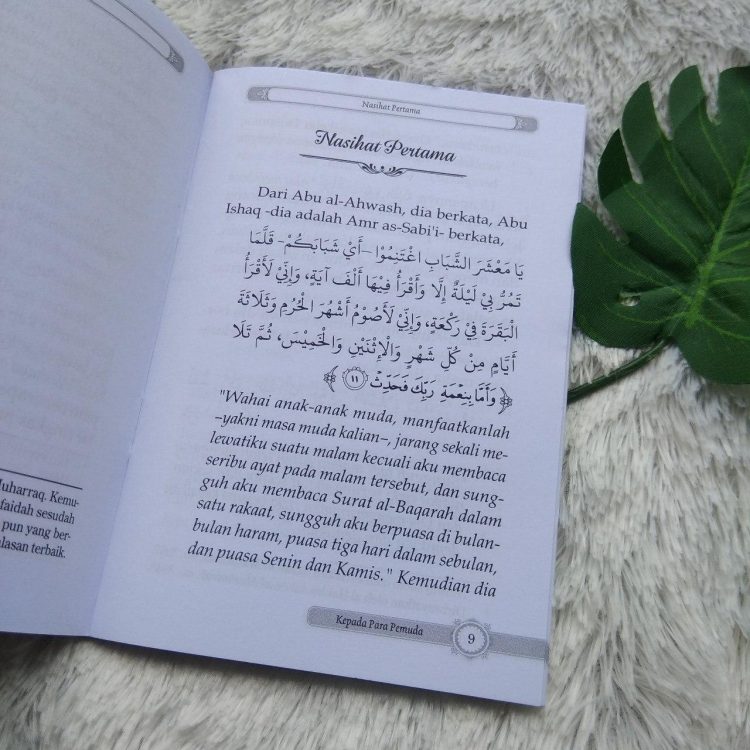 Muharraq. Kemu-
faidah sesudah
pun yang ber-
alasan terbaik.
Nasihat Pertama
Nasihat Pertama
Dari Abu al-Ahwash, dia berkata, Abu
Ishaq -dia adalah Amr as-Sabi'i- berkata,
يَا مَعْشَرَ الشَّبَابِ اغْتَنِمُوْا –أَيْ شَبَابَكُمْ– قَلَّمَا
تَمُرُّ بِيْ لَيْلَةٌ إِلَّا وَأَقْرَأُ فِيْهَا أَلْفَ آيَةٍ، وَإِنِّيْ لَأَقْرَأُ
الْبَقَرَةَ فِيْ رَكْعَةٍ، وَإِنِّيْ لَأَصُوْمُ أَشْهُرَ الْحُرُمِ وَثَلَاثَةَ
أَيَّامٍ مِنْ كُلِّ شَهْرٍ وَالْإِثْنَيْنِ وَالْخَمِيْسَ، ثُمَّ تَلَا
﴿وَأَمَّا بِنِعْمَةِ رَبِّكَ فَحَدِّثْ ١١﴾
"Wahai anak-anak muda, manfaatkanlah
–yakni masa muda kalian–, jarang sekali me-
lewatiku suatu malam kecuali aku membaca
seribu ayat pada malam tersebut, dan sung-
guh aku membaca Surat al-Baqarah dalam
satu rakaat, sungguh aku berpuasa di bulan-
bulan haram, puasa tiga hari dalam sebulan,
dan puasa Senin dan Kamis." Kemudian dia
Kepada Para Pemuda
9